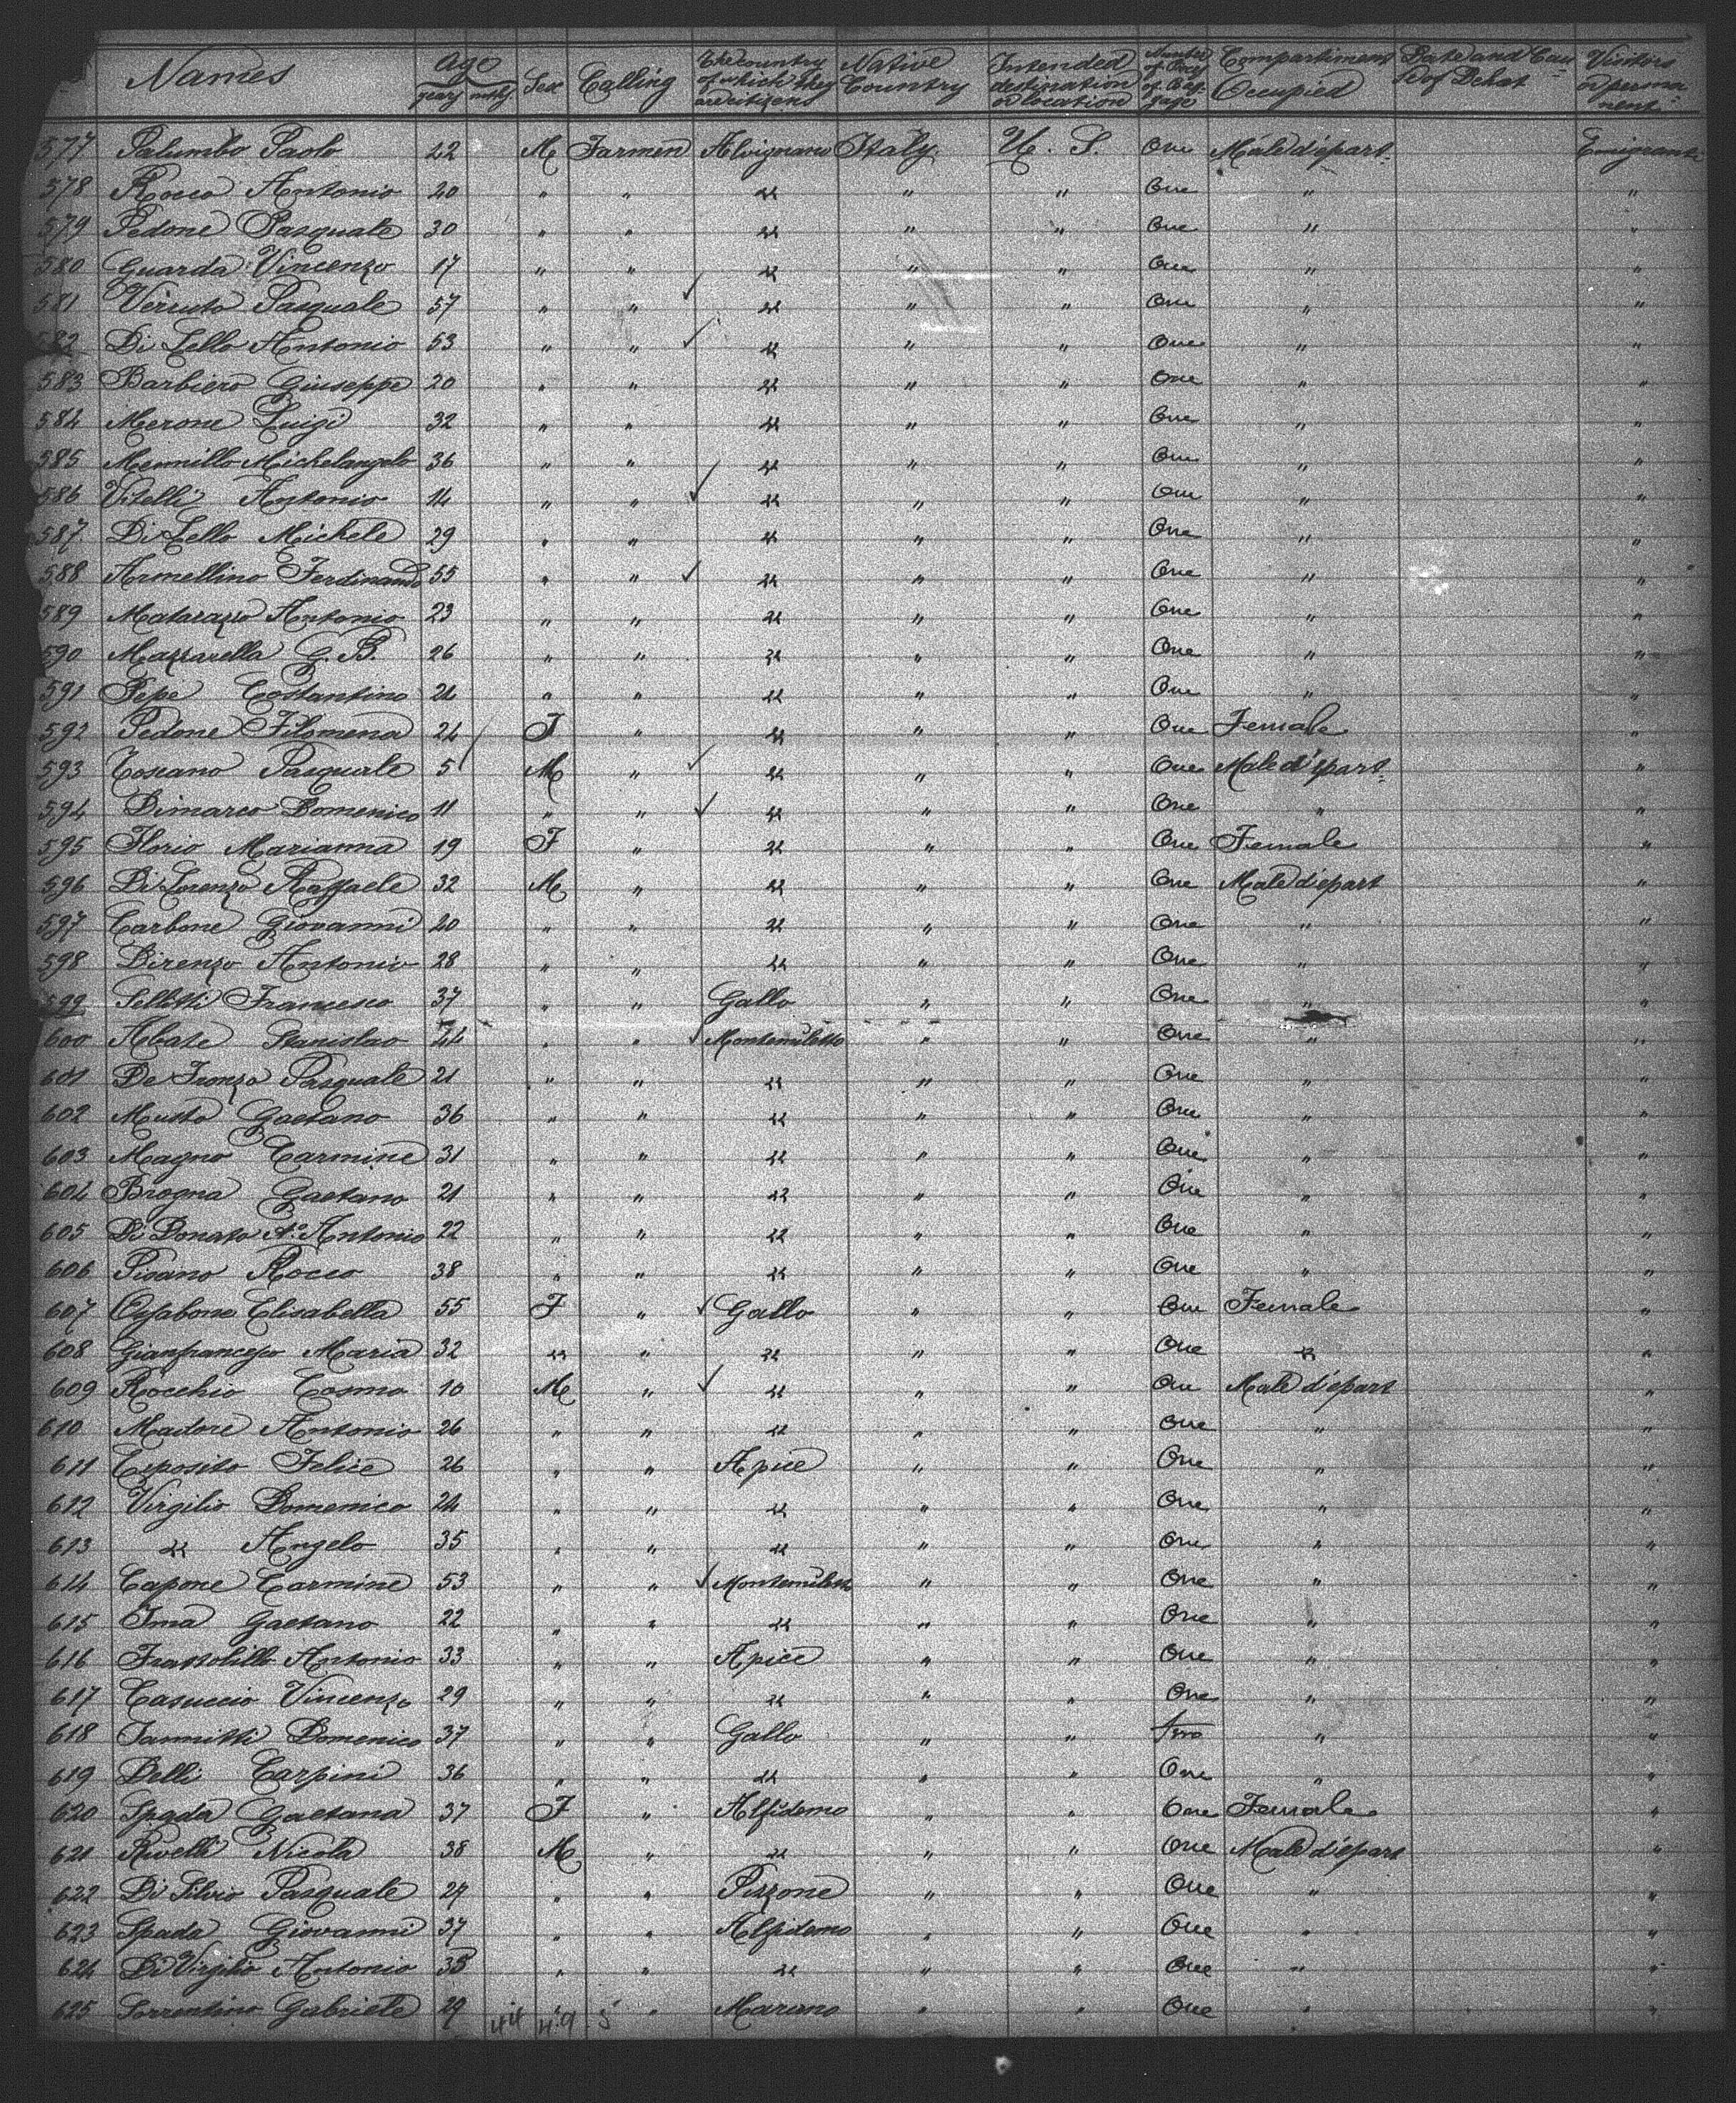 Names Age years mnths Sex Calling The country of which they are citizens Native Country Intended destination or location Number of Pieces of Baggage Compartiment Occupied Date and Cause of Dehat Visitors or permanent
577 Palumbo Paolo 22 M Farmen Alvignano Italy U. S. One Male d'épart. Emigrants
578 Rocco Antonio 20 " " " " " One " "
579 Pedone Pasquale 30 " " " " " One " "
580 Guarda Vincenzo 17 " " " " " One " "
581 Verruto Pasquale 57 " " " " " One " "
582 Di Lello Antonio 53 " " " " " One " "
583 Barbiero Giuseppe 20 " " " " " One " "
584 Merone Luigi 32 " " " " " One " "
585 Mennillo Michelangelo 36 " " " " " One " "
586 Vitelli Antonio 14 " " " " " One " "
587 Di Lello Michele 29 " " " " " One " "
588 Armellino Ferdinando 55 " " " " " One " "
589 Matarazzo Antonio 23 " " " " " One " "
590 Mazzarella G. B. 26 " " " " " One " "
591 Pepe Costantino 24 " " " " " One " "
592 Pedone Filomena 24 F " " " " One Female "
593 Toscano Pasquale 5 M " " " " One Male d'épart. "
594 Dimarco Domenico 11 " " " " " One " "
595 Florio Marianna 19 F " " " " One Female "
596 Di Lorenzo Raffaele 32 M " " " " One Male d'épart "
597 Carbone Giovanni 20 " " " " " One " "
598 Direnzo Antonio 28 " " " " " One " "
599 Francesco 37 " " Gallo " " One " "
600 Abate Stanislao 44 " " Montemiletto " " One " "
601 De Fronzo Pasquale 21 " " " " " One " "
602 Musto Gaetano 36 " " " " " One " "
603 Magno Carmine 31 " " " " " One " "
604 Brogna Gaetano 21 " " " " " One " "
605 Di Donato Antonio 22 " " " " " One " "
606 Pisano Rocco 38 " " " " " One " "
607 Elisabetta 55 F " Gallo " " One Female "
608 Gianfrancesco Maria 32 " " " " " One " "
609 Rocchio Cosmo 10 M " " " " One Male d'épart "
610 Madore Antonio 26 " " " " " One " "
611 Esposito Felice 26 " " Apice " " One " "
612 Virgilio Domenico 24 " " " " " One " "
613 " Angelo 35 " " " " " One " "
614 Capone Carmine 53 " " Montemiletto " " One " "
615 Ima Gaetano 22 " " " " " One " "
616 Frattolillo Antonio 33 " " Apice " " One " "
617 Casuccio Vincenzo 29 " " " " " One " "
618 Iannitti Domenico 37 " " Gallo " " Two " "
619 Delli Carpini 36 " " " " " One " "
620 Spada Gaetana 37 F " Alfidemo " " One Female "
621 Rivelli Nicola 38 M " " " " One Male d'épart "
622 Di Silvio Pasquale 27 " " Pizzone " " One " "
623 Spada Giovanni 37 " " Alfidemo " " One " "
624 Di Virgilio Antonio 33 " " " " " One " "
625 Sorrentino Gabriele 29 " " Marano " " One " "
44 49 5